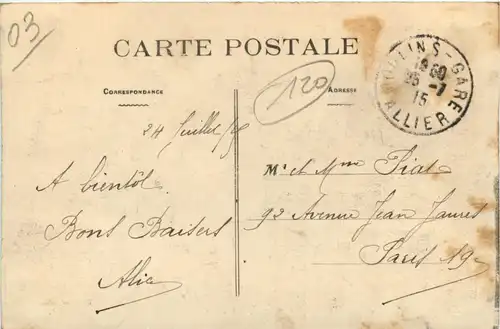 03
CARTE POSTALE
CORRESPONDANCE
ADRESSE
120
MOULINS-GARE
18 50
25-7
15
ALLIER
24 Juillet/15
A bientôt
Bons Baisers
Alice
Mr et Mme Piat
92 Avenue Jean Jaurès
Paris 19e